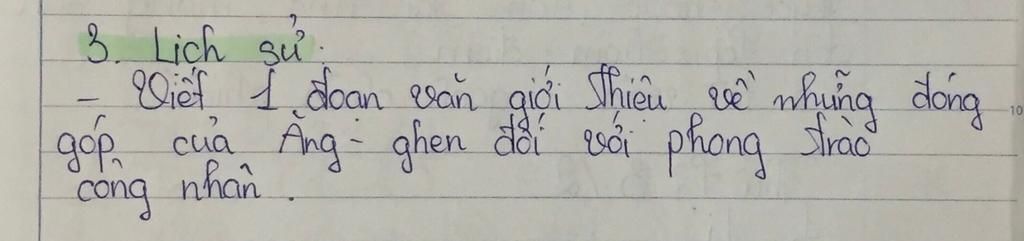 3. Lịch sử:
- Viết 1 đoạn văn giới thiệu về những đóng
góp của Ăng-ghen đối với phong trào
công nhân.
10